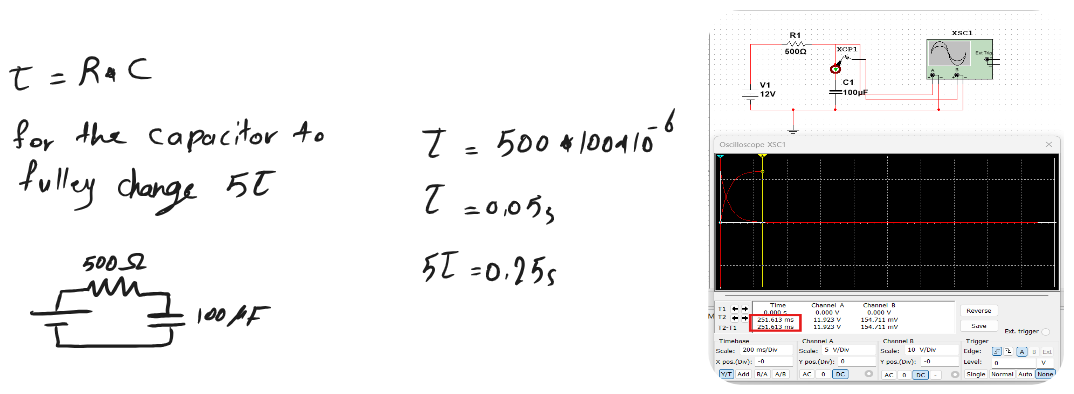 τ = R*C
for the capacitor to
fulley change 5τ
500Ω
100μF
τ = 500*100*10⁻⁶
τ = 0,05s
5τ = 0.25s
XSC1
R1
500Ω
XCP1
Ext Trig
V1
12V
C1
100μF
Oscilloscope XSC1
Time Channel A Channel B
T1 0.000 s 0.000 V 0.000 V
T2 251.613 ms 11.923 V 154.711 mV
T2-T1 251.613 ms 11.923 V 154.711 mV
Reverse
Save
Ext. trigger
Timebase
Scale: 200 ms/Div
X pos.(Div): -0
Y/T Add B/A A/B
Channel A
Scale: 5 V/Div
Y pos.(Div): 0
AC 0 DC
Channel B
Scale: 10 V/Div
Y pos.(Div): -0
AC 0 DC -
Trigger
Edge: A B Ext
Level: 0 V
Single Normal Auto None